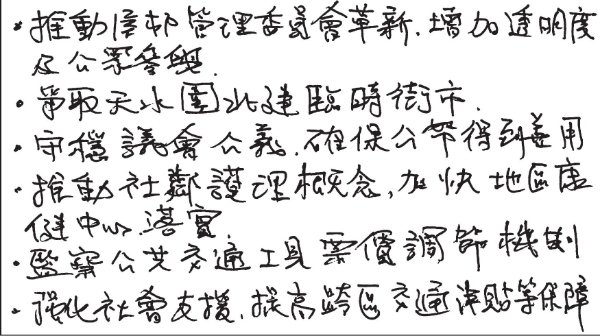 •推動信邨管理委員會革新.增加透明度
及公眾參與.
•爭取天水圍北建臨時街市.
•守穩議會公義.確保公帑得到善用
•推動社鄰護理概念,加快地區康
健中心落實.
•監察公共交通工具票價調節機制
•強化社會支援.提高跨區交通津貼等保障